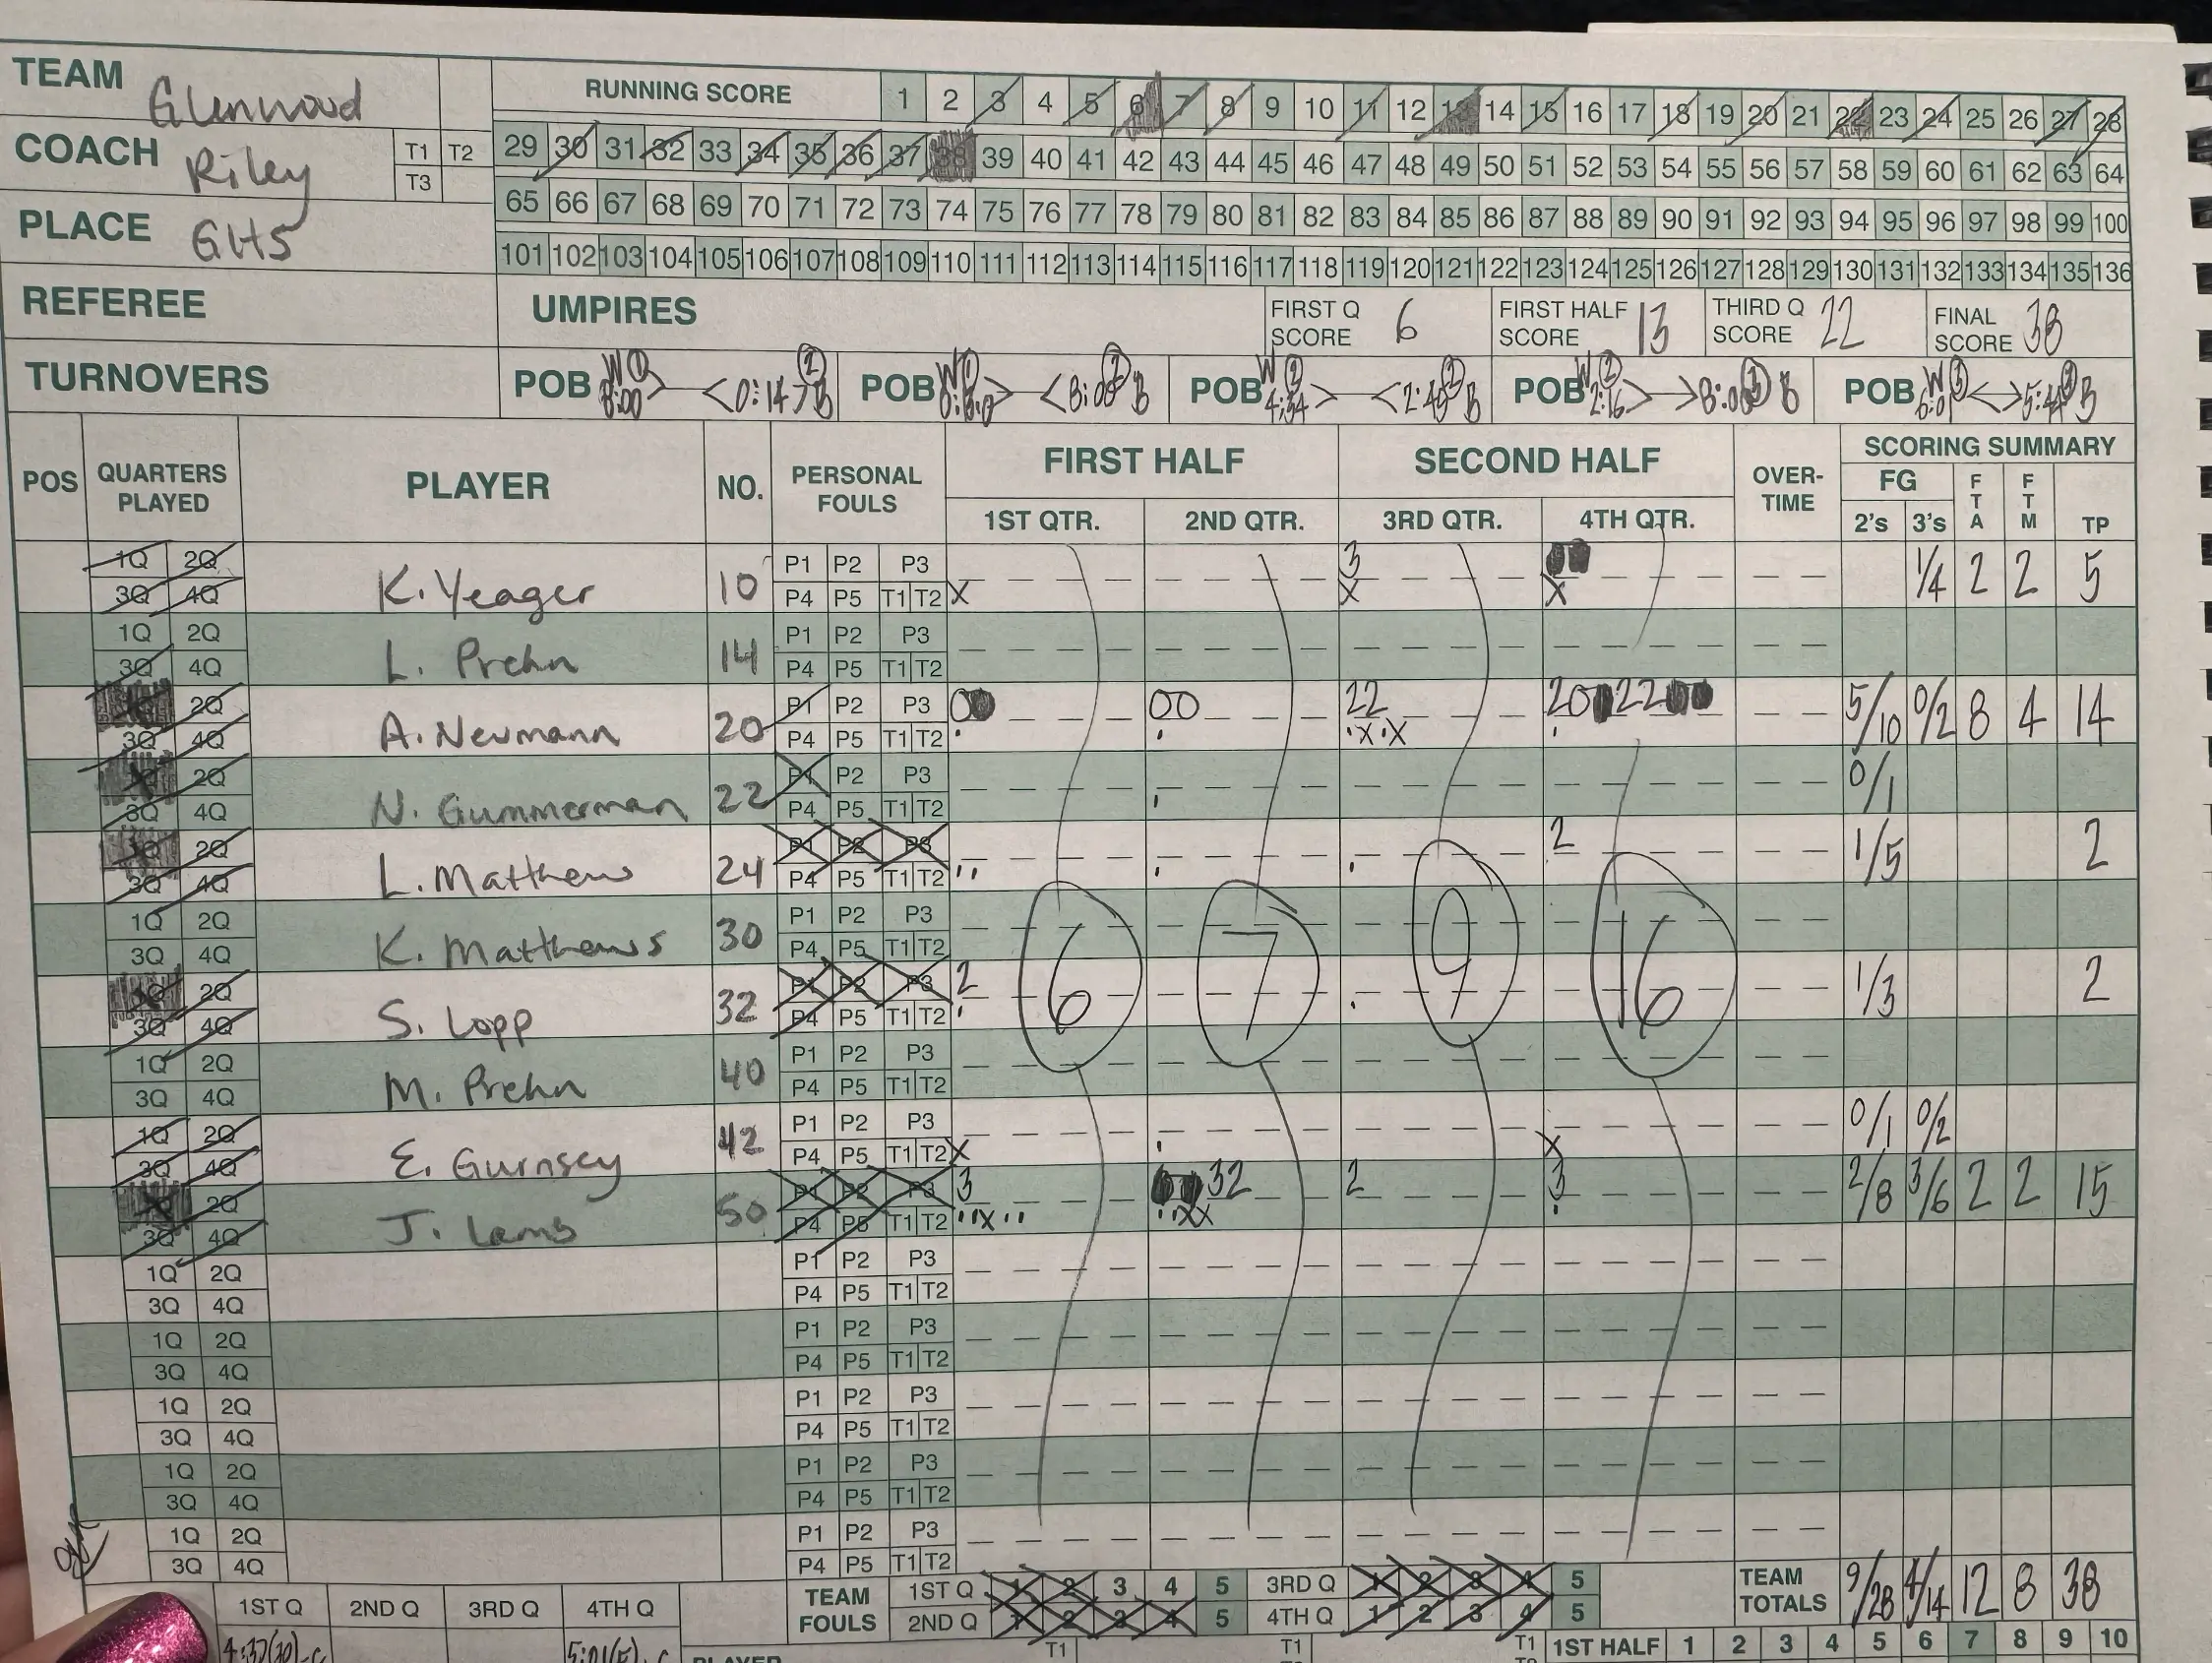 TEAM Glenwood
RUNNING SCORE 1 2 3 4 5 6 7 8 9 10 11 12 13 14 15 16 17 18 19 20 21 22 23 24 25 26 27 28
COACH Riley T1 T2 T3
29 30 31 32 33 34 35 36 37 38 39 40 41 42 43 44 45 46 47 48 49 50 51 52 53 54 55 56 57 58 59 60 61 62 63 64
PLACE GHS
65 66 67 68 69 70 71 72 73 74 75 76 77 78 79 80 81 82 83 84 85 86 87 88 89 90 91 92 93 94 95 96 97 98 99 100
101 102 103 104 105 106 107 108 109 110 111 112 113 114 115 116 117 118 119 120 121 122 123 124 125 126 127 128 129 130 131 132 133 134 135 136
REFEREE UMPIRES FIRST Q SCORE 6 FIRST HALF SCORE 13 THIRD Q SCORE 22 FINAL SCORE 38
TURNOVERS POB W 1 8:00 0:14 2 B POB W 1 8:00 2 B POB W 2 4:34 2 B POB W 2 2:16 8:00 3 B POB W 3 B
POS QUARTERS PLAYED PLAYER NO. PERSONAL FOULS FIRST HALF SECOND HALF OVER-TIME SCORING SUMMARY
1ST QTR. 2ND QTR. 3RD QTR. 4TH QTR. FG 2's 3's FTA FTM TP
1Q 2Q P1 P2 P3 3
3Q 4Q K. Yeager 10 P4 P5 T1 T2 X X X 1/4 2 2 5
1Q 2Q P1 P2 P3
3Q 4Q L. Prehn 14 P4 P5 T1 T2
2Q P1 P2 P3 00 00 22 20 22
3Q 4Q A. Neumann 20 P4 P5 T1 T2 X X 5/10 0/2 8 4 14
2Q P1 P2 P3
3Q 4Q N. Gummerman 22 P4 P5 T1 T2 0/1
2Q P1 P2 P3 2
3Q 4Q L. Matthews 24 P4 P5 T1 T2 1/5 2
1Q 2Q P1 P2 P3
3Q 4Q K. Matthews 30 P4 P5 T1 T2
6 7 9 16
2Q P1 P2 P3 2
3Q 4Q S. Lopp 32 P4 P5 T1 T2 1/3 2
1Q 2Q P1 P2 P3
3Q 4Q M. Prehn 40 P4 P5 T1 T2
1Q 2Q P1 P2 P3
3Q 4Q E. Gurnsey 42 P4 P5 T1 T2 X X 0/1 0/2
2Q P1 P2 P3 3 32 2 3
3Q 4Q J. Lamb 50 P4 P5 T1 T2 X XX 2/8 3/6 2 2 15
1Q 2Q P1 P2 P3
3Q 4Q P4 P5 T1 T2
1Q 2Q P1 P2 P3
3Q 4Q P4 P5 T1 T2
1Q 2Q P1 P2 P3
3Q 4Q P4 P5 T1 T2
1Q 2Q P1 P2 P3
3Q 4Q P4 P5 T1 T2
1Q 2Q P1 P2 P3
3Q 4Q P4 P5 T1 T2
TEAM FOULS 1ST Q 1 2 3 4 5 3RD Q 1 2 3 4 5 TEAM TOTALS 9/28 4/14 12 8 38
2ND Q 1 2 3 4 5 4TH Q 1 2 3 4 5
1ST Q 2ND Q 3RD Q 4TH Q
T1 T1 T1 1ST HALF 1 2 3 4 5 6 7 8 9 10
PLAYER